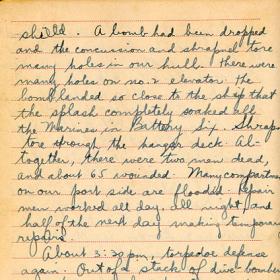 shield. A bomb had been dropped
and the concussion and shrapnel tore
many holes in our hull. There were
many holes on no. 2 elevator. The
bomb landed so close to the ship that
the splash completely soaked all
the Marines in Battery Six. Shrap
tore through the hangar deck. Al-
together, there were two men dead,
and about 65 wounded. Many compartmen
on our port side are flooded. Repair
men worked all day, all night, and
half of the next day making temporary
repairs.
About 3:30 pm, torpedoe defense
again. Out of a stack of dive bombe